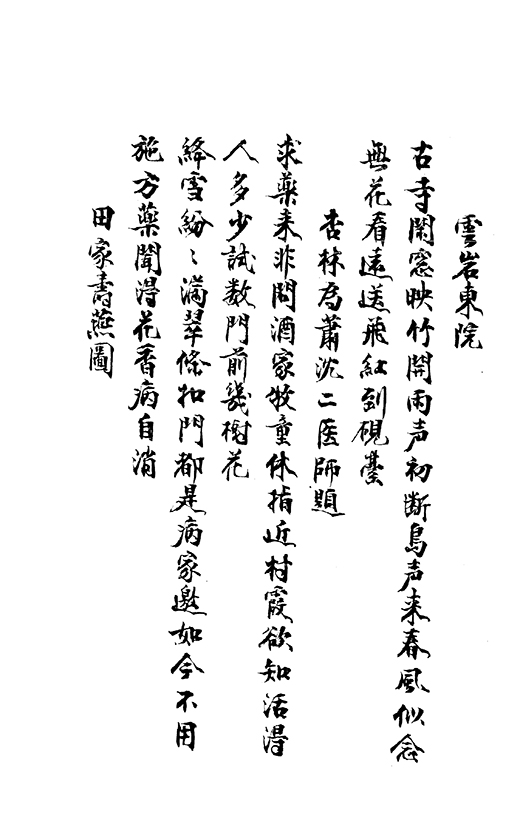 雲岩東院
古寺閑窓映竹開雨声初断鳥声来春風似念
無花看遠送飛紅到硯臺
杏林為蕭沈二医師題
求薬来非問酒家牧童休指近村霞欲知活得
人多少試数門前幾樹花
絳雪紛〻満翠條扣門都是病家邀如今不用
施方薬聞得花香病自消
田家寿燕圖